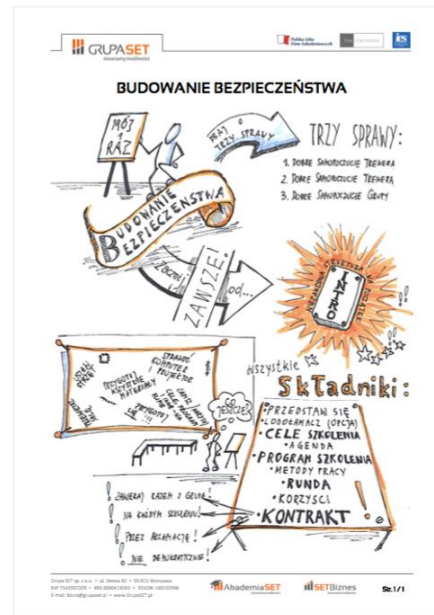 GRUPASET
stwarzamy możliwości
Polska Izba
Firm Szkoleniowych
BUDOWANIE BEZPIECZEŃSTWA
MÓJ
1
RAZ
TRZY SPRAWY
TRZY SPRAWY:
1. DOBRE SAMOPOCZUCIE TRENERA
2. DOBRE SAMOPOCZUCIE TRENERA
3. DOBRE SAMOPOCZUCIE GRUPY
BUDOWANIE
BEZPIECZEŃSTWA
ZACZNIJ
ZAWSZE!
OD...
INTRO
SPRAWDŹ
KOMPUTER
I PROJEKTOR
PRZYGOTUJ
WSZYSTKIE
MATERIAŁY
CO
JESZCZE?
Wszystkie
Składniki:
• PRZEDSTAW SIĘ
• LODOŁAMACZ (OPCJA)
• CELE SZKOLENIA
• AGENDA
• PROGRAM SZKOLENIA
• METODY PRACY
• RUNDA
• KORZYŚCI
• KONTRAKT
!
! ZAWIERAJ RAZEM Z GRUPĄ!
! NA KAŻDYM SZKOLENIU!
! PRZEZ AKLAMACJĘ!
! NIE DEMOKRATYCZNIE!
AkademiaSET
SETBiznes
Str.1/1